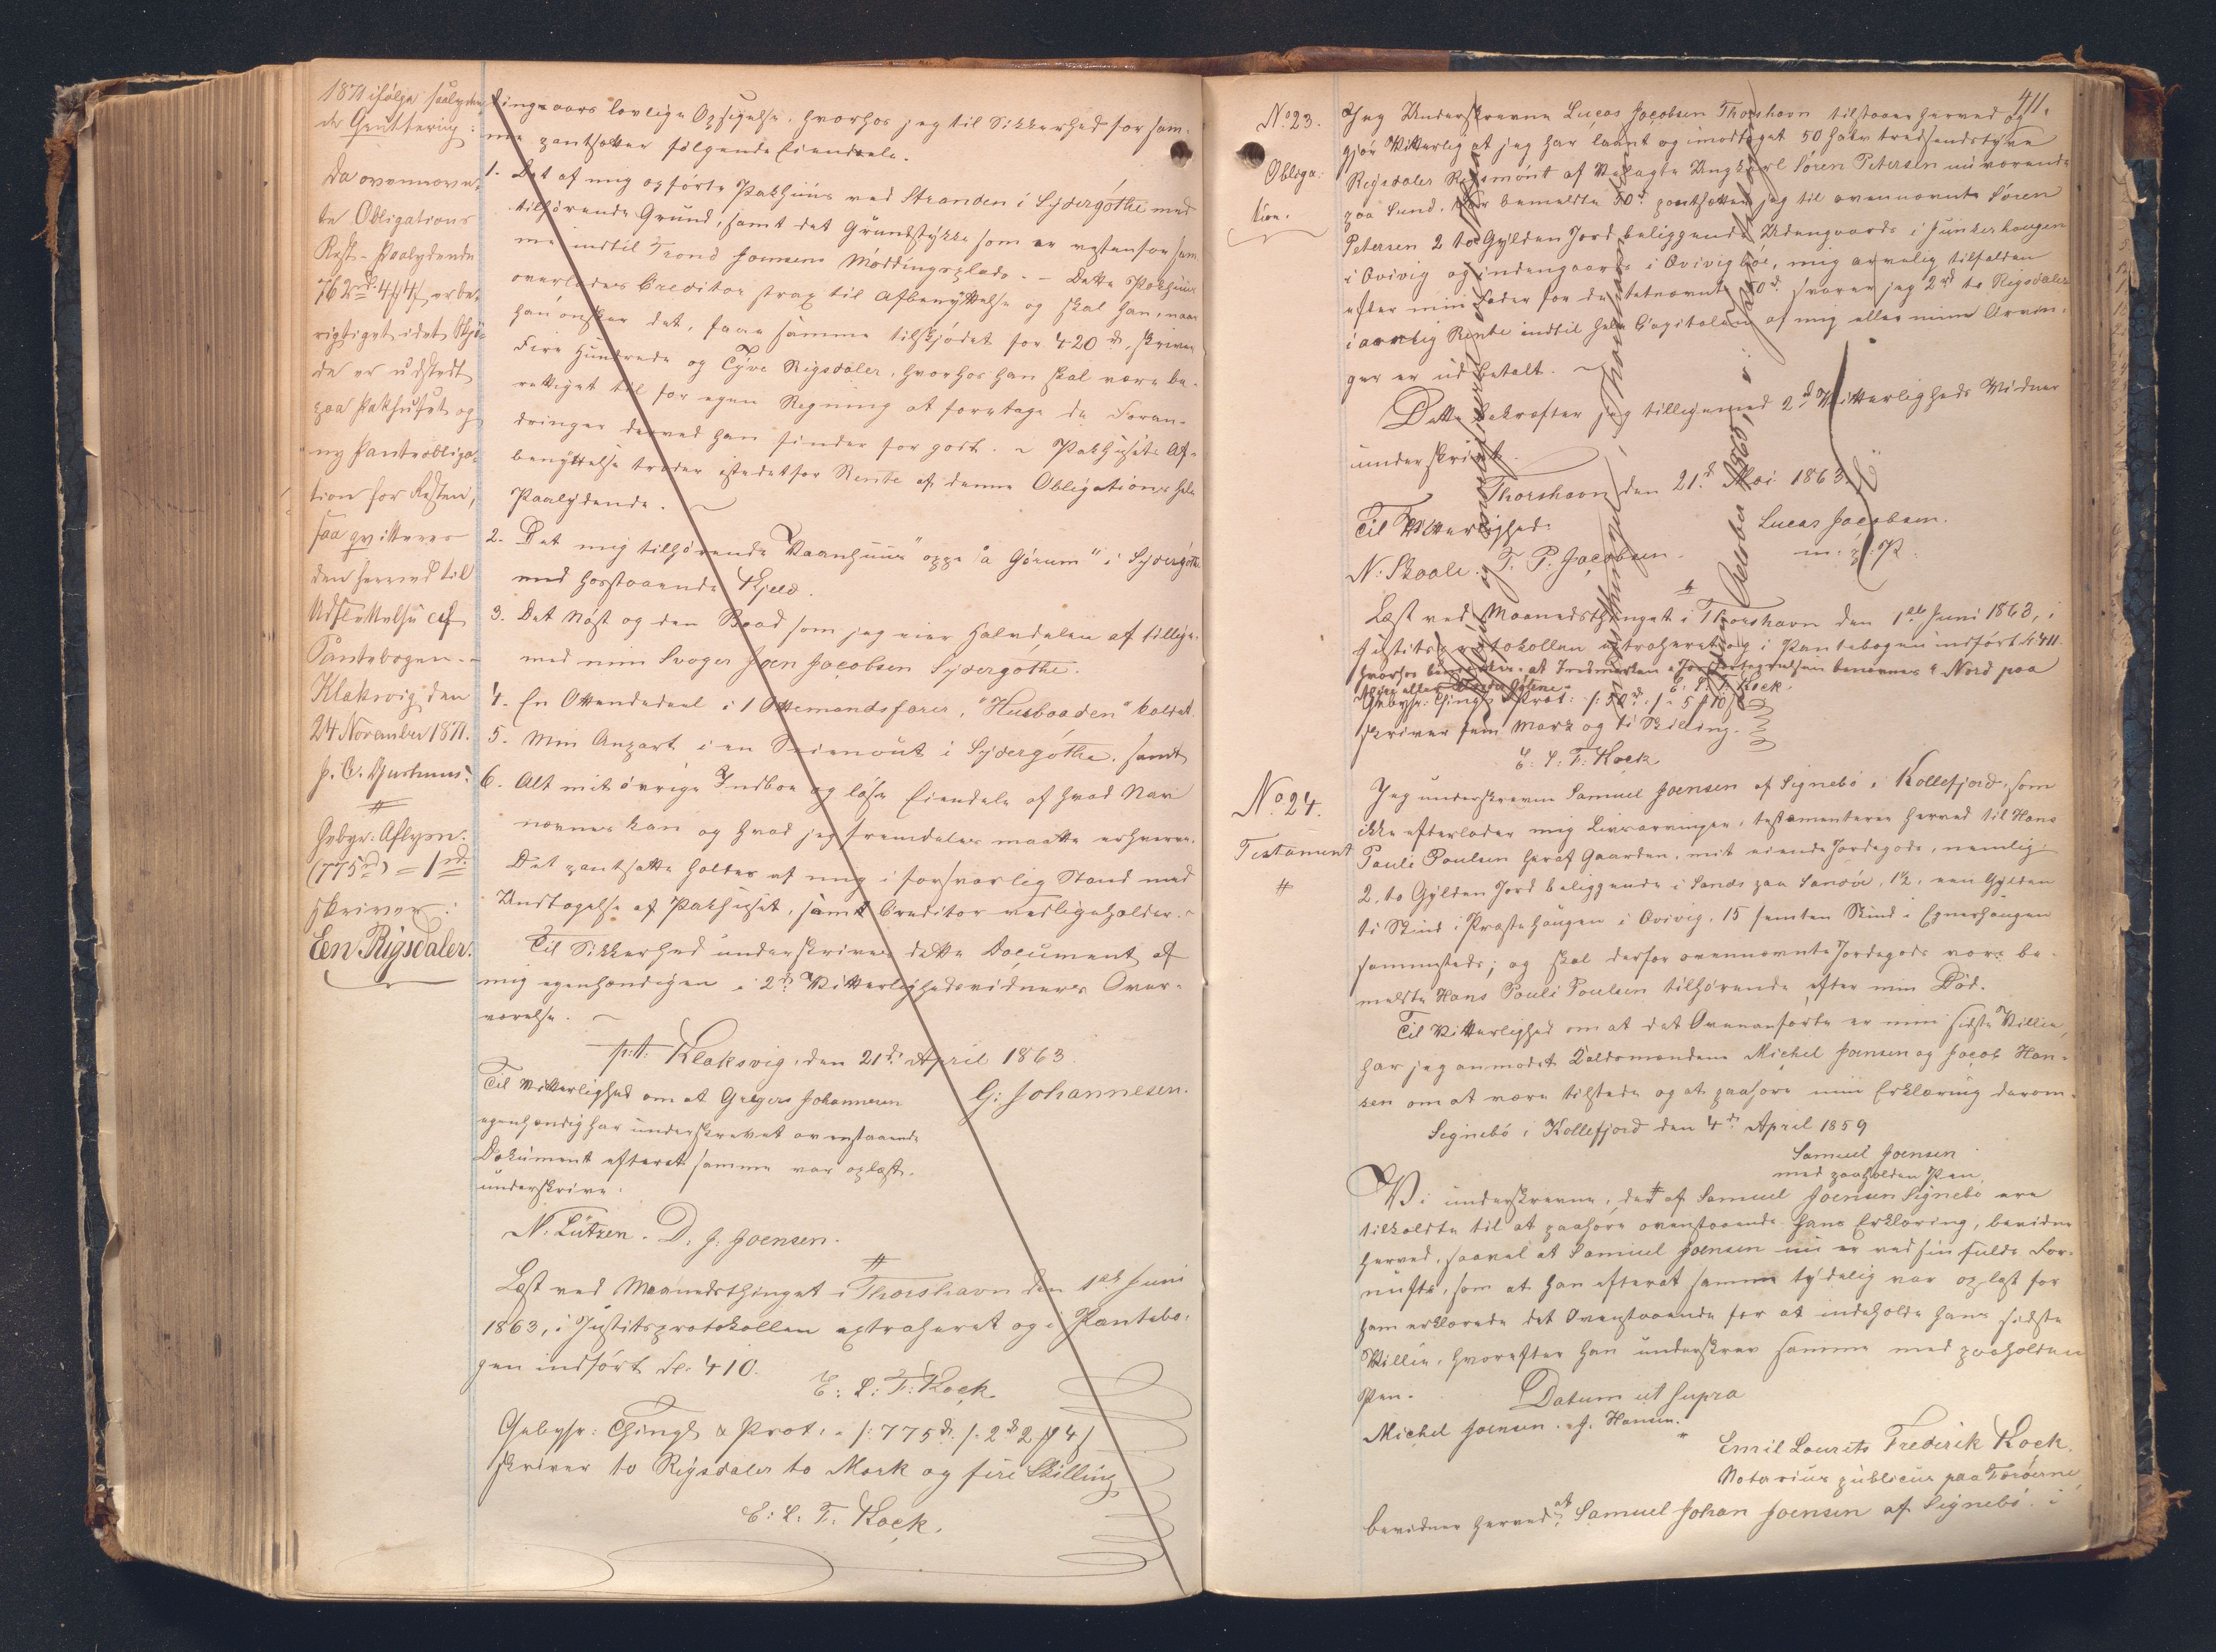 1871 ifølge saalyden-
de Qvittering:
Da ovennævn-
te Obligations
Rest-Paalydende
762 rd 4 # 4 ß er be-
rigtiget idet Skjø-
de er udstedt
paa Pakhuset og
ny Panteobliga-
tion for Resten,
saa qvitteres
den herved til
Udslettelse af
Pantebogen. -
Klaksvig den
24 November 1871.
Gebyr: Aflysn.
(775 rd) = 1 rd
skriver:
Een Rigsdaler.
fingaars lovlige Opsigelse, hvorhos jeg til Sikkerhed for sam-
me pantsætter følgende Eiendele.
1. Det af mig opførte Pakhuus ved Stranden i Sydergøthe med
tilhørende Grund, samt det Grundstykke som er vestenfor sam
me indtil Trond Joensens Møddingsplads. - Dette Pakhuus
overlades Creditor strax til Afbenyttelse og skal han, naar
han ønsker det, faae samme tilskjødet for 420 rd, skriver
Fire Hundrede og Tyve Rigsdaler, hvorhos han skal være be-
rettiget til for egen Regning at foretage de Foran-
dringer derved han finder for godt. ~ Pakhusets Af-
benyttelse træder istedetfor Rente af denne Obligations hele
Paalydende. ~
2. Det mig tilhørende Vaanhuus oppe "a Gørum" i Sydergøthe
med hosstaaende Kjeld.
3. Det Nøst og den Baad som jeg eier Halvdelen af tillige-
med min Svoger Joen Jacobsen Sydergøthe.
4. En Ottendedeel i 1 Ottemandsfarer, "Husbaaden" kaldet.
5. Min Anpart i en i Sydergøthe, samt
6. Alt mit øvrige Indboe og løse Eiendele af hvad Navn
nævnes kan og hvad jeg fremdeles maatte erhverve.
Det pantsatte holdes af mig i forsvarlig Stand med
Undtagelse af Pakhuset, samt Creditor vedligeholder. ~
Til Sikkerhed underskrives dette Document af
mig egenhændigen i 2de Vitterlighedsvidners Over-
værelse. ~
p.t. Klaksvig, den 21de April 1863.
G: Johannesen.
Til Vitterlighed om at Gregers Johannesen
egenhændig har underskrevet ovenstaaende
Dokument efterat samme var oplæst.
underskrive:
N. Lützen. D. J. Joensen.
Læst ved Maanedsthinget i Thorshavn den 1ste Juni
1863, i Justitsprotokollen extraheret og i Pantebo-
gen indført Fol: 410.
E: L: F: Kock.
Gebyr: Thingl & Prot: - /: 775 rd :/ - 2 rd 2 # 4 ß
skriver to Rigsdaler to Mark og fire Skilling
E: L: F: Kock.
411.
No 23.
Obliga-
tion.
Jeg Underskrevne Lucas Jacobsen Thorshavn tilstaaer herved og
gjør Vitterlig at jeg har laant og imodtaget 50 halvtredsendstyve
Rigsdaler Rigsmønt af Velagte Ungkarl Søren Petersen nu værende
paa Sund. For bemeldte 50 rd pantsætter jeg til ovennævnte Søren
Petersen 2 to Gylden Jord beliggende Udengaards i Junkerhaugen
i Qvivig og indengaards i Qvivigbøe, mig arvelig tilfalden
efter min Fader for de testnævnte 50 rd svarer jeg 2 rd to Rigsdaler
i aarlig Rente indtil hele Capitalen af mig eller mine Arvin-
ger er udbetalt. ~
Dette bekræfter jeg tilligemed 2de Vitterligheds Vidner
underskrivt.
Thorshavn den 21de Mai 1863.
Til Vitterlighed: Lucas Jacobsen.
N: Skaale. T. P. Jacobsen. m: f: P.
Læst ved Maanedsthinget i Thorshavn den 1ste Juni 1863, i
Justitsprotokollen extraheret og i Pantebogen indført Fol 411.
E: L: F: Kock.
Gebyr: Thingl & Prot: /: 50 rd :/ - 5 # 10 ß
skriver fem Mark og ti Skilling.
E: L: F: Kock
No 24.
Testament
Jeg underskrevne Samuel Joensen af Signebø i Kollefjord, som
ikke efterlader mig Livsarvinger, testamenterer herved til Hans
Pauli Poulsen heraf Gaarden, mit eiende Jordegods, nemlig
2, to Gylden Jord beliggende i Sands paa Sandøe, 1½, een Gylden
ti Skind i Præstehaugen i Qvivig, 15 femten Skind i Egnerhaugen
sammesteds; og skal derfor ovennævnte Jordegods være be-
meldte Hans Pauli Poulsen tilhørende efter min Død.
Til Vitterlighed om at det Ovenanførte er min sidste Villie,
har jeg anmodet Daldsmændene Michel Joensen og Jacob Han-
sen om at være tilstede og at paahøre min Erklæring derom.
Signebø i Kollefjord den 4de April 1859
Samuel Joensen
med paaholden Pen.
Vi underskrevne, der af Samuel Joensen Signebø ere
tilkaldte til at paahøre ovenstaaende hans Erklæring, bevidne
herved, saavel at Samuel Joensen nu er ved sin fulde For-
nuft, som at han efterat samme tydelig var oplæst for
ham erklærede det Ovenstaaende for at indeholde hans sidste
Villie, hvorefter han underskrev samme med paaholden
Pen. Datum ut supra
Michel Joensen. J. Hansen.
Emil Lourits Frederik Kock.
Notarius publicus paa Færøerne
bevidner herved, at Samuel Johan Joensen af Signebø i